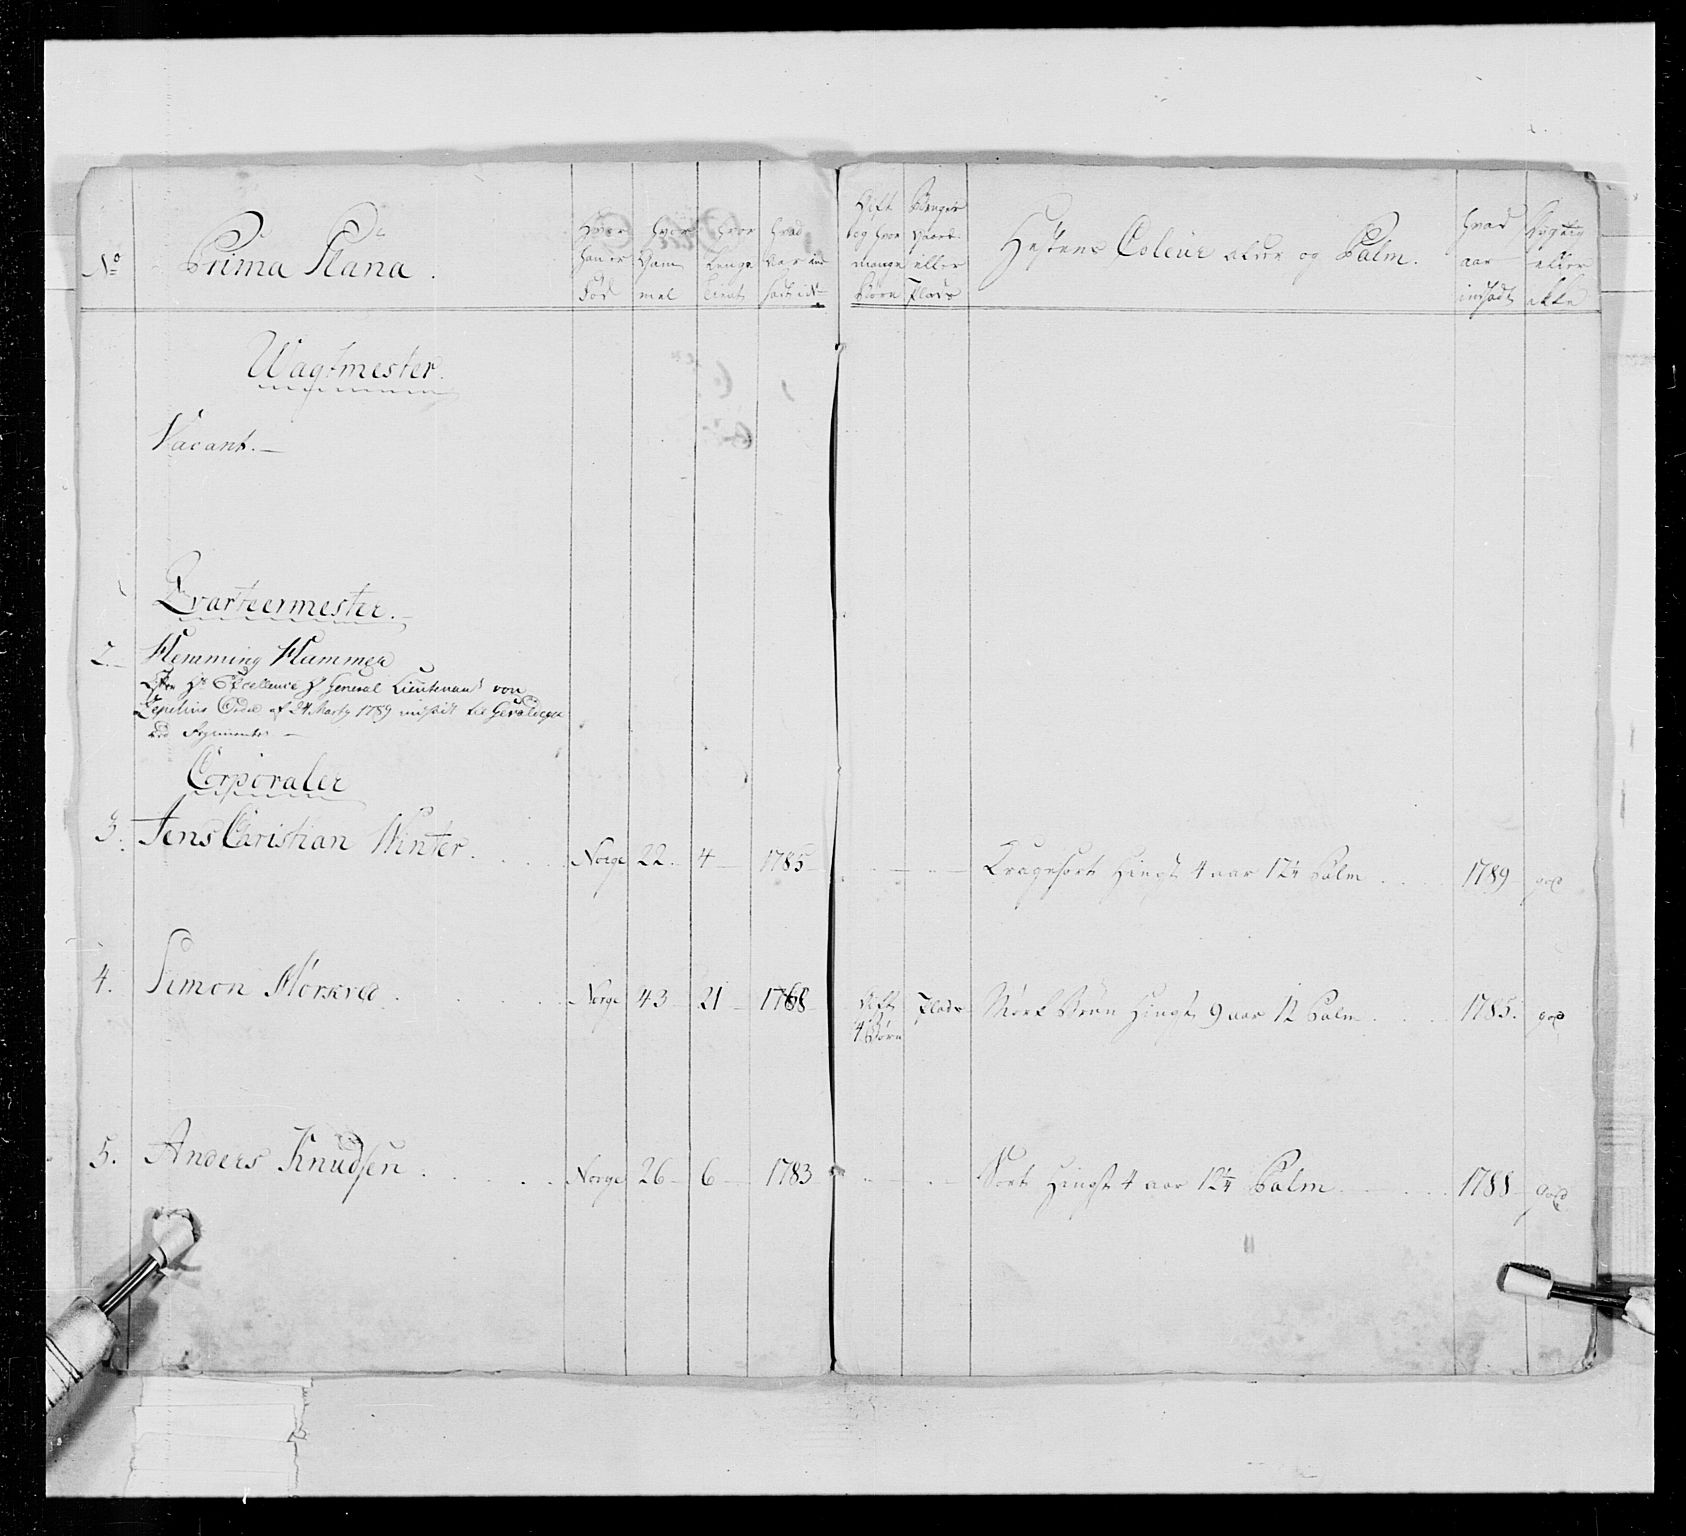 No
Prima Plana.
Hvor han er Född
hvor Gammel
hvor lenge tient
hvad
Gift og hvor mange Börn
eller Plads
Hestens Coleur alder og Palm.
hvad aar indsadt
Dygtig eller ikke
Wagtmester.
Vacant.—
Qvarteermester.
2. Flemming Hammer
Efter Hs Excellence Hr General Lieutenant von
Zepelins Ordre af 24 Marty 1789 ansadt til
ved Regimentet —
Corporaler
3. Jens Christian Winter. Norge 22. 4 1785 Kragesort Hingst 4 aar 12¼ Palm 1789 god
4. Simon Hörsrød. Norge 43 21 1768 Gift 4 Börn Plads Mörk Brun Hingst 9 aar 12 Palm 1785. god
5. Anders Knudsen. Norge 26 6 1783 Sort Hingst 4 aar 12¼ Palm 1788 god